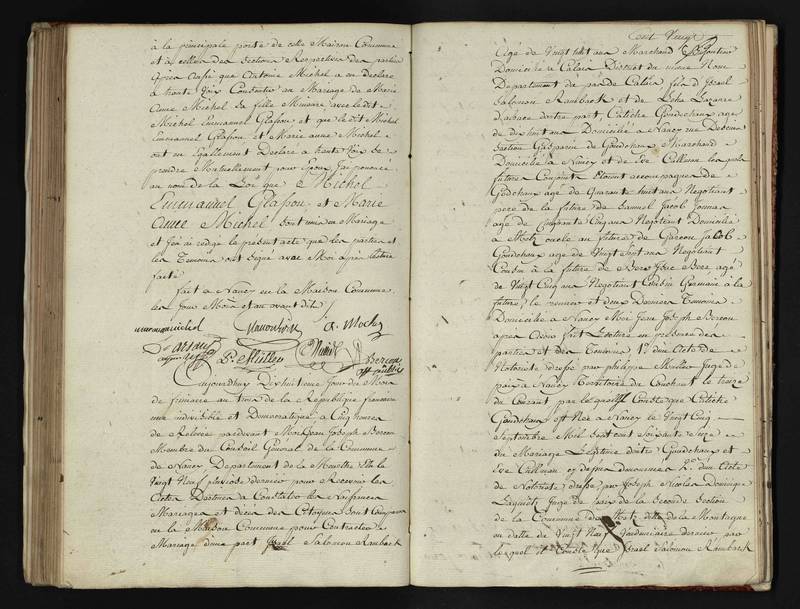 à la principale porte de cette Maison Commune
et à celles des Section Respectives des parties
après aussi que Antoine Michel a en déclaré
à haute voix Consentir au Mariage de Marie
anne Michel sa fille Mineure avec ledit
Michel Emmanuel Glasson et que ledit Michel
Emmanuel Glasson et Marie anne Michel
ont en Egallement Declaré à haute Voix Se
prendre Mutuellement pour Epoux, J'ai prononcé
au nom de la Loi que Michel
Emmanuel Glasson et Marie
Anne Michel sont unis en Mariage
et j'en ai rédigé le présent acte que les parties et
les Temoins ont signé avec Moi après lecture
faite
fait à Nancy en la Maison Commune
les Jour Mois et an avant dits
A. Mochy
P. Mulleu
Bereau
off public
aujourdhuy Dixneuvieme Jour du Mois
de frimaire au trois de la République francaise
une indivisible et Democratique à Cinq heures
de Relevée pardevant Moi Jean Joseph Bereau
Membre du Conseil Général de la Commune
de Nancy Departement de la Meurthe Elu le
Vingt Neuf pluviose dernier pour Recevoir les
Actes Destinés à Constater les Naissances
Mariages et décès des Citoyens Sont Comparus
en la Maison Commune pour Contracter
Mariage d'une part Israel Salomon Rambach
Cent Vingt
Agé de Vingt huit ans Marchand Bijoutier
Domicilié à Calais District du même Nom
Departement du pas de Calais fils d'Israel
Salomon Rambach et de Lazare
d'autre part, Gudchaux agée
de dix huit ans Domiciliée à Nancy rue
Section fille de Goudchaux Marchand
Domicilié à Nancy et de Eve Cullman les quels
futurs Conjoints Etoient accompagnés de
Godchaux agé de quarante huit ans Negotiant
père de la future de Samuel Jacob
agé de Cinquante Cinq ans Negotiant Domicilié
à Metz oncle au future de Garçon Jacob
Goudchaux agé de Vingt Sept ans Negotiant
Cousin à la future de Berr agé
de Vingt Cinq ans Negotiant Cousin Germain à la
future, le premier et deux Derniers Temoins
Domiciliés à Nancy Moi Jean Joseph Bereau
après avoir fait Lecture en présence des
parties et des Temoins 1.° d'un Acte de
Notoriété dressé par philippe Mulleu Juge de
paix à Nancy Territoire du Couchant le treize
du Courant par lequel Conste que
Goudchaux est Née à Nancy le Vingt Cinq
Septembre Mil Sept cent Soixante Seize
du Mariage Légitime d'entre Goudchaux et
Eve Cullman cy dessus denommés 2.° d'un Acte
de Notoriété dressé par Joseph Nicolas Dominique
Juge de paix de la Seconde Section
de la Commune de Metz ditte de la Montagne
en datte du Vingt Neuf Vendemiaire dernier par
lequel il Conste que Israel Salomon Rambach